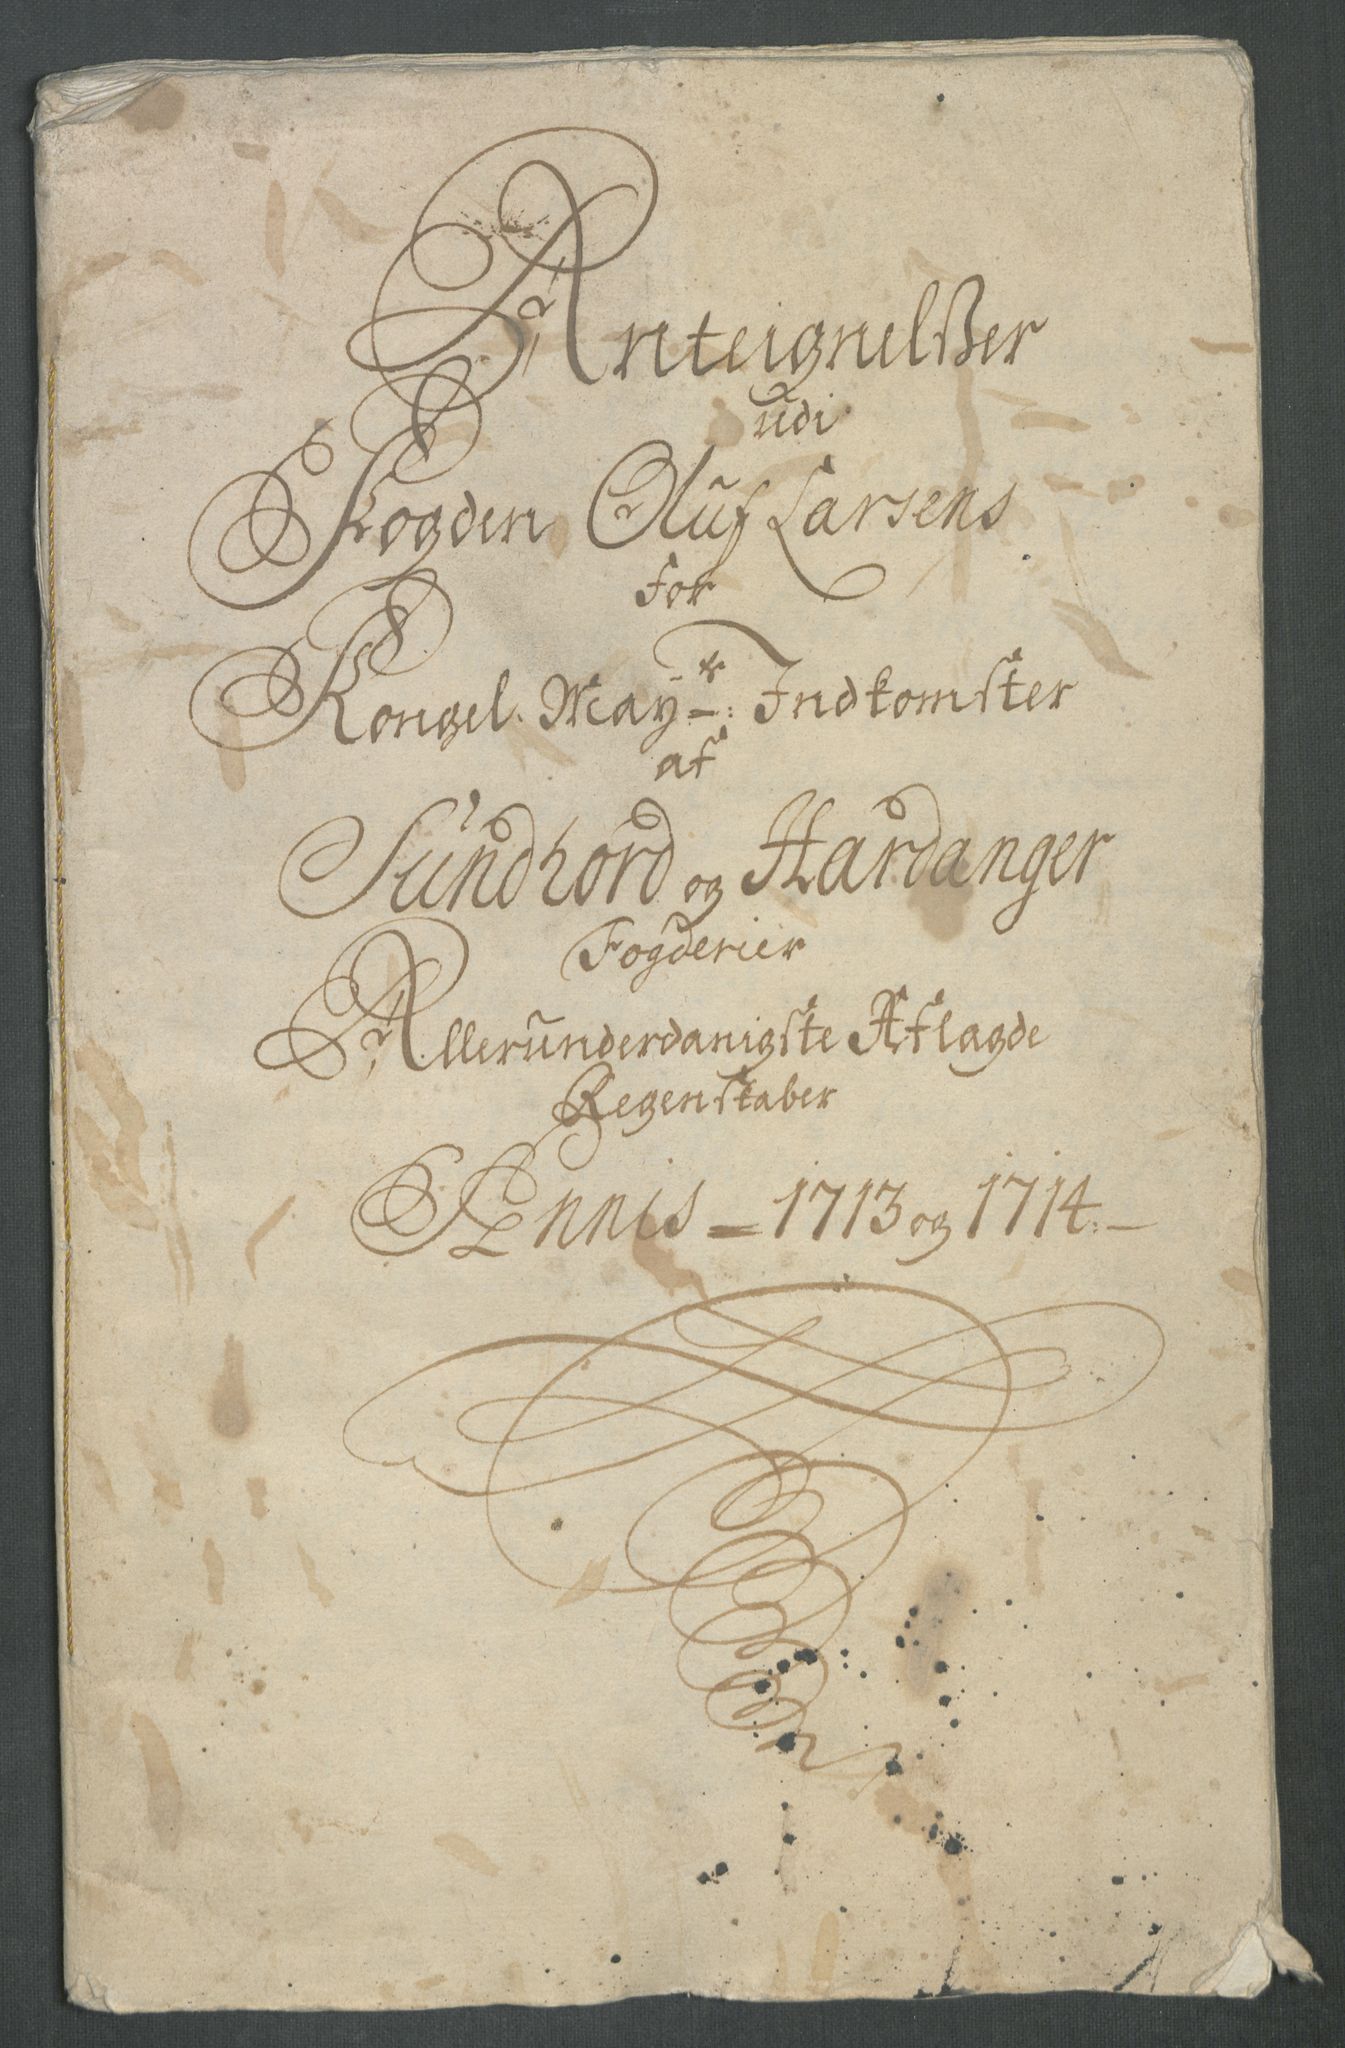 Anteignelßer
udi
Fogden Oluf Larsens
for
Kongel. May.ts: Indkomster
af
Sundhord og Hardanger
Fogderier
Allerunderdanigste Aflagde
Regenskaber
Ao̅nnis 1713 og 1714.